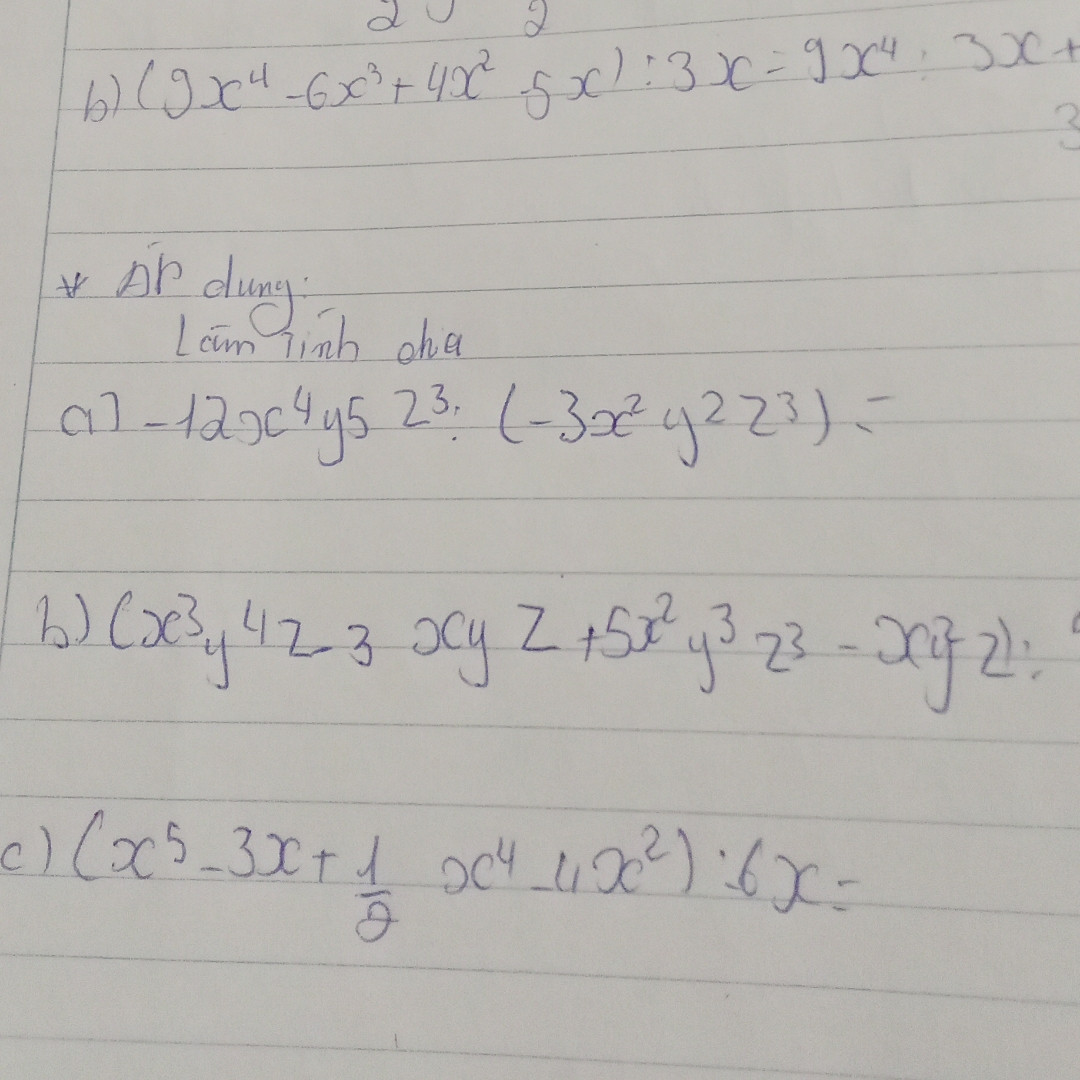 2 2
b) (9x⁴ - 6x³ + 4x² - 5x) : 3x = 9x⁴ : 3x +
3
* Áp dụng:
Làm tính chia
a) -12x⁴y5 z³ : (-3x² y² z³) =
b) (x³y⁴z - 3 xyz + 5x² y³ z³ - xy² z) :
c) (x⁵ - 3x + 1/2 x⁴ - 4x²) : 6x =